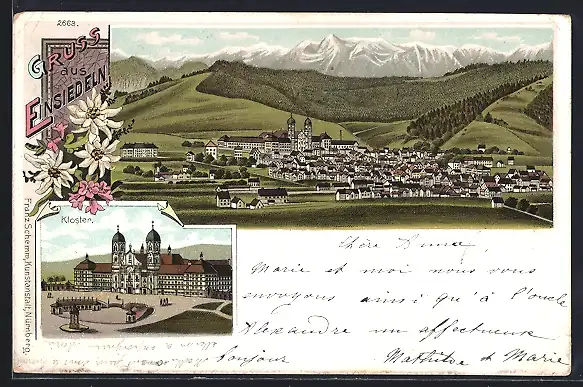 2663.
Gruss
aus
Einsiedeln
Kloster.
Franz Schemm, Kunstanstalt, Nürnberg.
Chère Anna,
Marie et moi nous vous
envoyons ainsi qu'à l'oncle
Alexandre un affectueuse
bonjour Mathilde et Marie